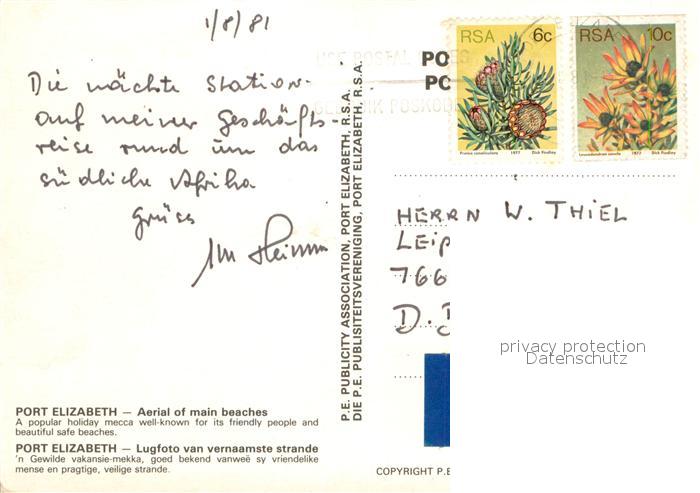 1/8/81
Die nächte Station
auf meiner Geschäfts-
reise rund um das
südliche Afrika
Grüss
RSA 6c
1977 Dick Findlay
RSA 10c
1977 Dick Findlay
PO
PO
P.E. PUBLICITY ASSOCIATION, PORT ELIZABETH, R.S.A.
DIE P.E. PUBLISITEITSVERENIGING, PORT ELIZABETH, R.S.A.
HERRN W. THIEL
LEIP
766
D.
privacy protection
Datenschutz
PORT ELIZABETH — Aerial of main beaches
A popular holiday mecca well-known for its friendly people and
beautiful safe beaches.
PORT ELIZABETH — Lugfoto van vernaamste strande
'n Gewilde vakansie-mekka, goed bekend vanweë sy vriendelike
mense en pragtige, veilige strande.
COPYRIGHT P.E